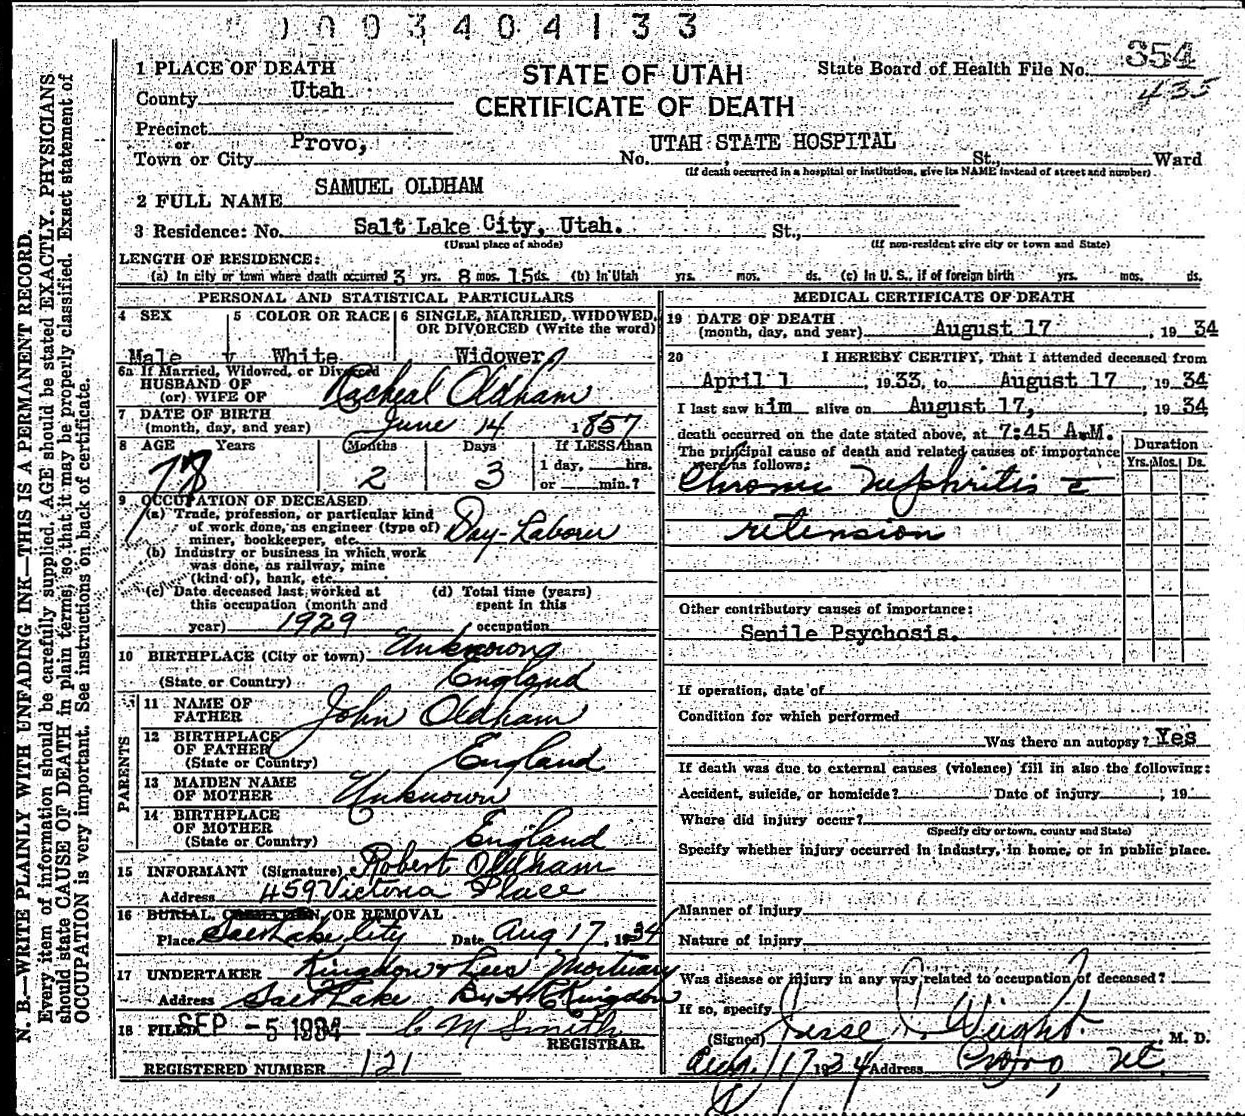 0003404133
1 PLACE OF DEATH
STATE OF UTAH
CERTIFICATE OF DEATH
State Board of Health File No. 354
435
County Utah
Precinct
or
Town or City Provo,
No. UTAH STATE HOSPITAL St., Ward
(If death occurred in a hospital or institution, give its NAME instead of street and number)
2 FULL NAME SAMUEL OLDHAM
3 Residence: No. Salt Lake City, Utah. St.,
(Usual place of abode) (If non-resident give city or town and State)
LENGTH OF RESIDENCE:
(a) In city or town where death occurred 3 yrs. 8 mos. 15 ds. (b) In Utah yrs. mos. ds. (c) In U. S., if of foreign birth yrs. mos. ds.
PERSONAL AND STATISTICAL PARTICULARS
4 SEX Male
5 COLOR OR RACE White
6 SINGLE, MARRIED, WIDOWED, OR DIVORCED (Write the word) Widower
6a If Married, Widowed, or Divorced
HUSBAND OF
(or) WIFE OF Racheal Oldham
7 DATE OF BIRTH
(month, day, and year) June 14 1857
8 AGE Years Months Days If LESS than
78 2 3 1 day, hrs.
or min.?
9 OCCUPATION OF DECEASED
(a) Trade, profession, or particular kind
of work done, as engineer (type of)
miner, bookkeeper, etc. Day-Laborer
(b) Industry or business in which work
was done, as railway, mine
(kind of), bank, etc.
(c) Date deceased last worked at
this occupation (month and
year) 1929
(d) Total time (years)
spent in this
occupation
10 BIRTHPLACE (City or town) Unknown
(State or Country) England
PARENTS
11 NAME OF
FATHER John Oldham
12 BIRTHPLACE
OF FATHER
(State or Country) England
13 MAIDEN NAME
OF MOTHER Unknown
14 BIRTHPLACE
OF MOTHER
(State or Country) England
15 INFORMANT (Signature) Robert Oldham
Address 459 Victoria Place
16 BURIAL, CREMATION, OR REMOVAL
Place Salt Lake City Date Aug 17, 1934
17 UNDERTAKER Kingdon & Lees Mortuary
Address Salt Lake By H C Kingdon
18 FILED SEP -5 1934 C M Smith
REGISTRAR.
REGISTERED NUMBER 121
MEDICAL CERTIFICATE OF DEATH
19 DATE OF DEATH
(month, day, and year) August 17, 1934
20 I HEREBY CERTIFY, That I attended deceased from
April 1, 1933, to August 17, 1934
I last saw him alive on August 17, 1934
death occurred on the date stated above, at 7:45 A.M.
The principal cause of death and related causes of importance
were as follows:
Duration
Yrs. Mos. Ds.
Chronic Nephritis c̄
retension
Other contributory causes of importance:
Senile Psychosis.
If operation, date of
Condition for which performed
Was there an autopsy? Yes
If death was due to external causes (violence) fill in also the following:
Accident, suicide, or homicide? Date of injury, 19
Where did injury occur?
(Specify city or town, county and State)
Specify whether injury occurred in industry, in home, or in public place.
Manner of injury
Nature of injury
Was disease or injury in any way related to occupation of deceased?
If so, specify
(Signed) Jesse Weight. M. D.
Aug. 17 1934 Address Provo, Ut
N. B.—WRITE PLAINLY WITH UNFADING INK—THIS IS A PERMANENT RECORD.
Every item of information should be carefully supplied. AGE should be stated EXACTLY. PHYSICIANS
should state CAUSE OF DEATH in plain terms, so that it may be properly classified. Exact statement of
OCCUPATION is very important. See instructions on back of certificate.